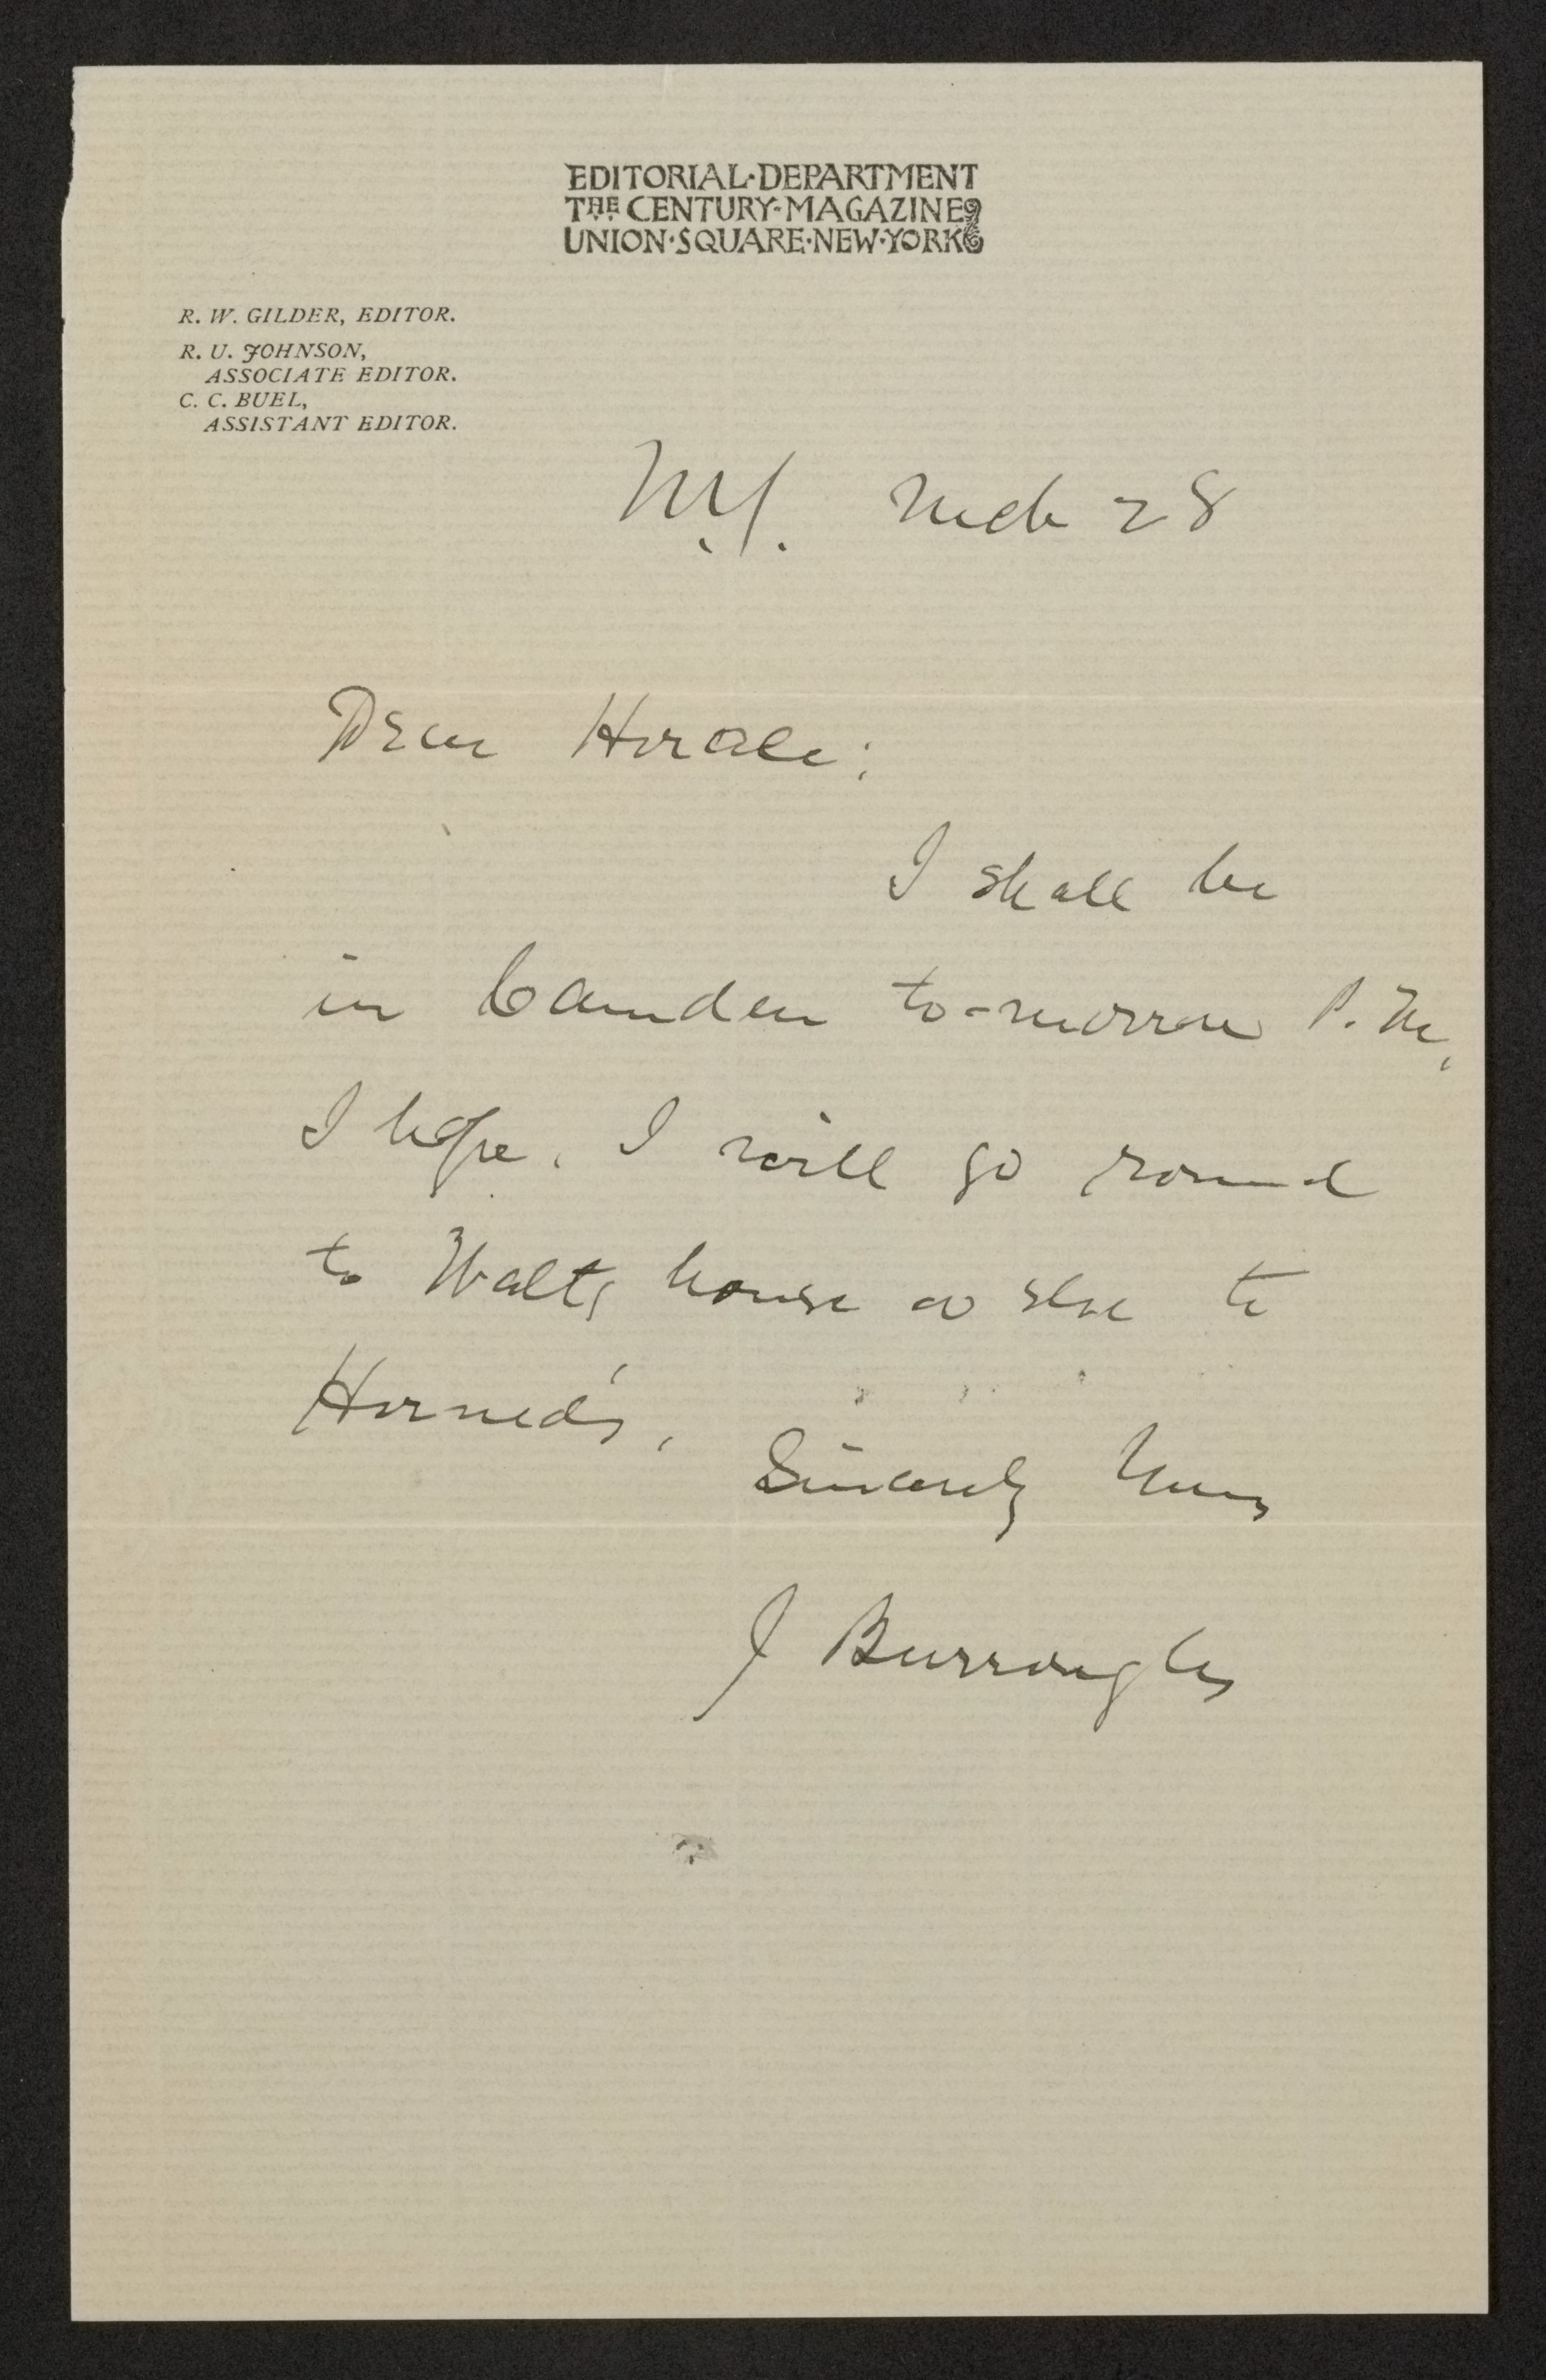 EDITORIAL·DEPARTMENT
THE CENTURY·MAGAZINE
UNION·SQUARE·NEW·YORK
R. W. GILDER, EDITOR.
R. U. JOHNSON,
ASSOCIATE EDITOR.
C. C. BUEL,
ASSISTANT EDITOR.
N.Y. Mch 28
Dear Horace:
I shall be
in Camden to-morrow P.M,
I hope. I will go round
to Walts house or else to
Horned's,
Sincerely Yours
J Burroughs